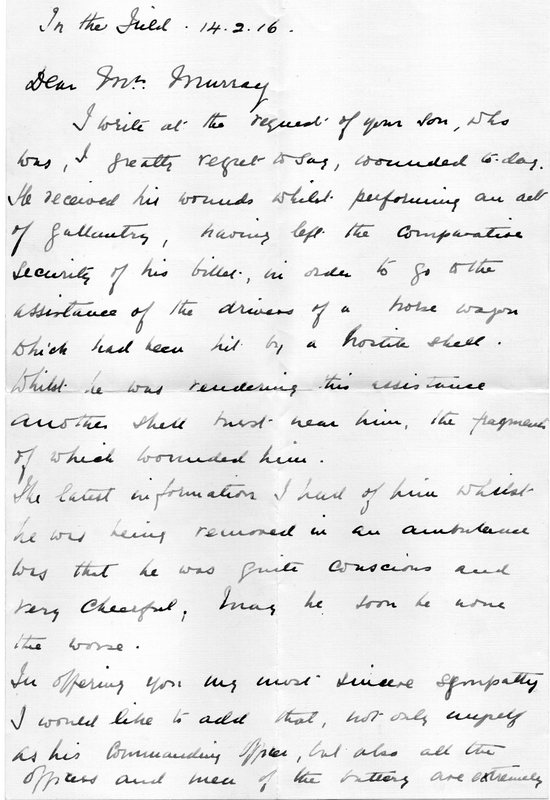 In the Field. 14.2.16.
Dear Mrs. Murray
I write at the request of your son, who
was, I greatly regret to say, wounded to-day.
He received his wounds whilst performing an act
of gallantry, having left the comparative
security of his billet, in order to go to the
assistance of the drivers of a horse wagon
which had been hit by a hostile shell.
Whilst he was rendering this assistance
another shell burst near him, the fragments
of which wounded him.
The latest information I had of him whilst
he was being removed in an ambulance
was that he was quite conscious and
very cheerful; May he soon be none
the worse.
In offering you my most sincere sympathy
I would like to add that, not only myself
as his Commanding Officer, but also all the
officers and men of the battery are extremely